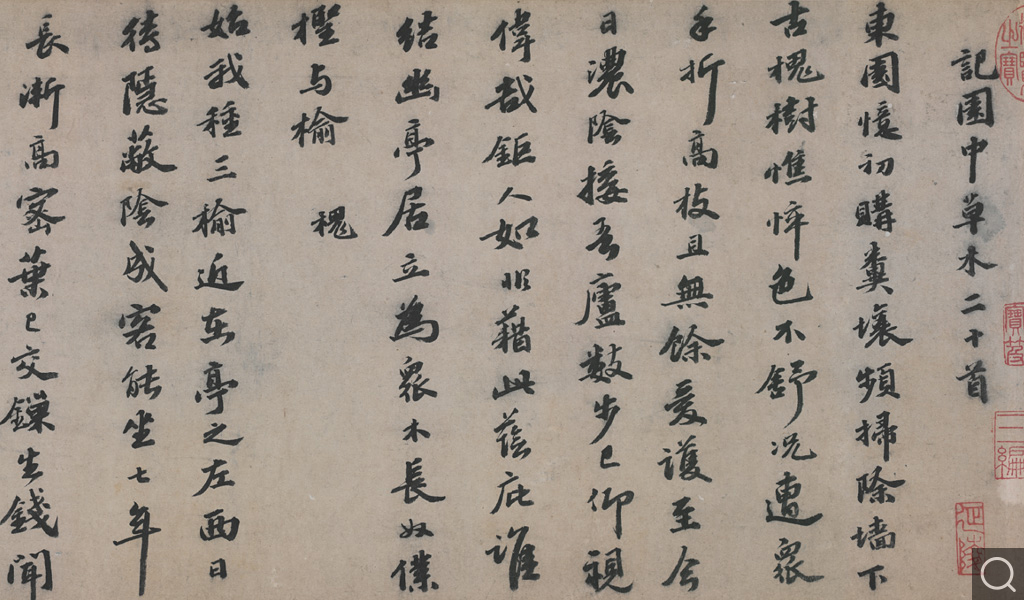 記園中草木二十首
東園憶初購糞壤頻掃除墻下
古槐樹憔悴色不舒況遭眾
手折高枝且無餘愛護至今
日濃陰接吾廬數步已仰視
偉哉鉅人如藉此蔭庇誰
結幽亭居立為眾木長奴僕
檉与榆 槐
始我種三榆近在亭之左西日
待隱蔽陰成客能坐七年
長漸高密葉已交鏁生錢聞